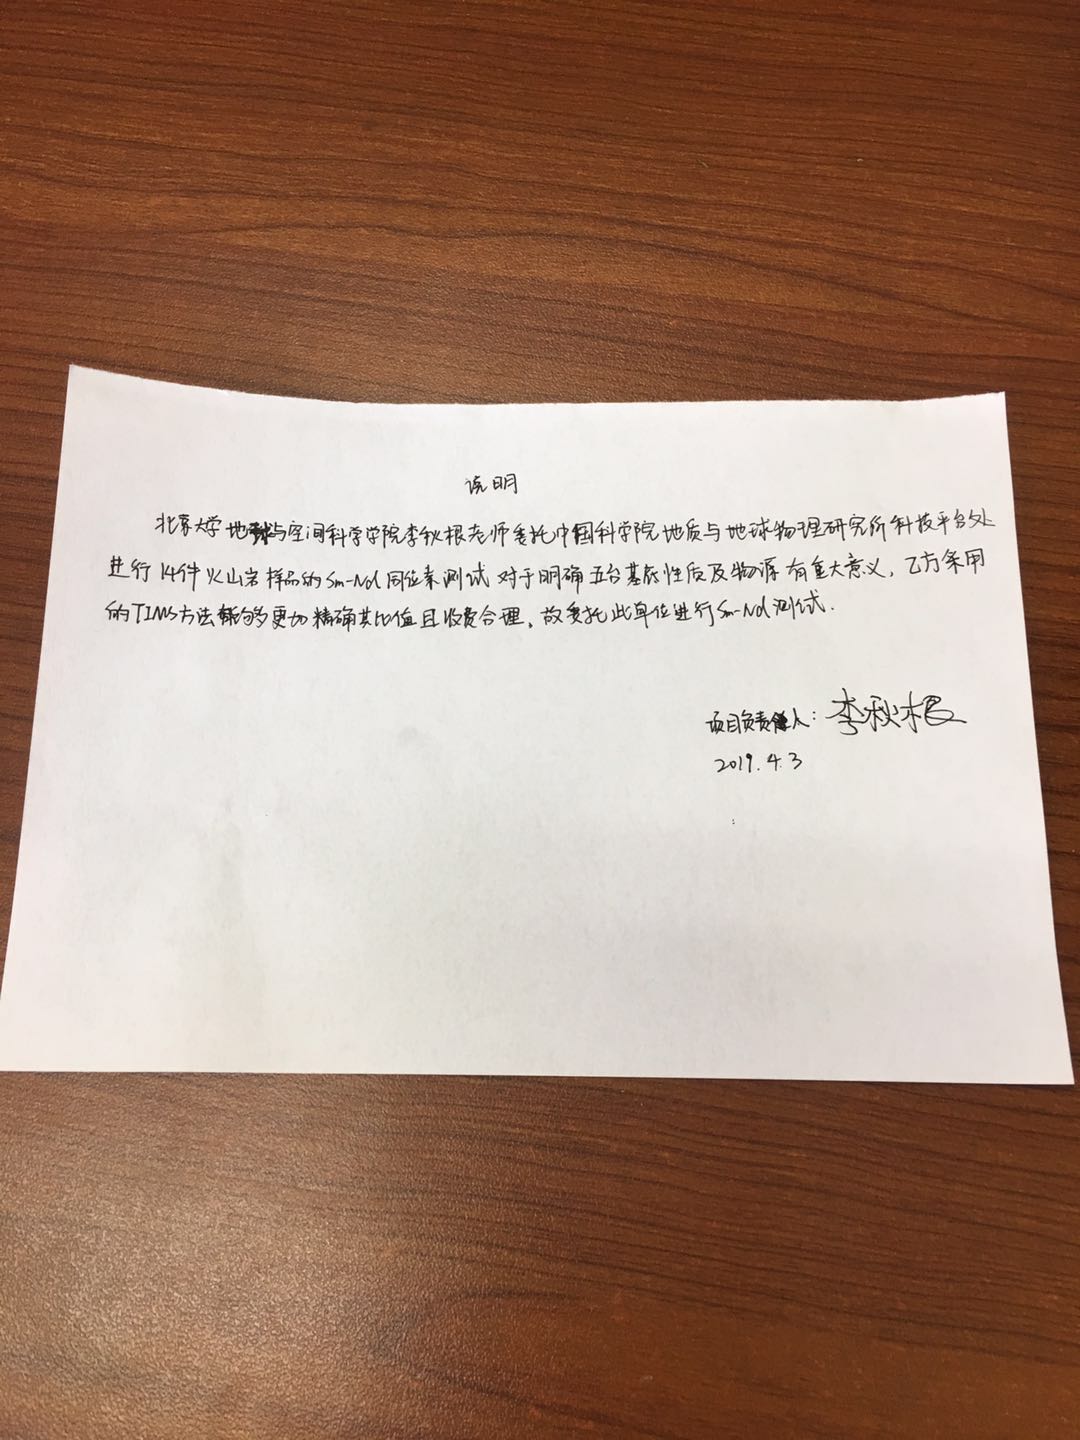 说明
北京大学地球与空间科学学院李秋根老师委托中国科学院地质与地球物理研究所科技平台处
进行14件火山岩样品的Sm-Nd同位素测试对于明确五台基底性质及物源有重大意义,乙方采用
的TIMS方法能够更加精确其比值且收费合理,故委托此单位进行Sm-Nd测试.
项目负责人:李秋根
2019.4.3